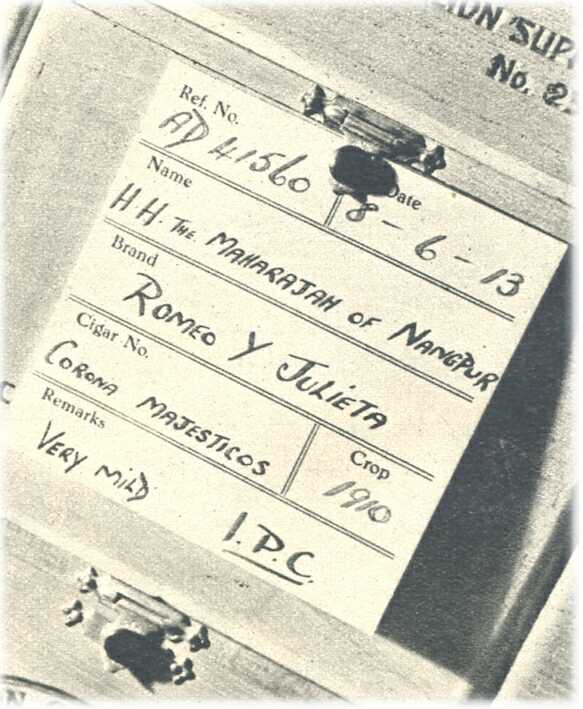 No. 2
Ref. No. Date
AD 41560 18 - 6 - 13
Name
H H. THE MAHARAJAH OF NANGPUR
Brand
ROMEO Y JULIETA
Cigar No. Crop
CORONA MAJESTICOS 1910
Remarks
VERY MILD I.P.C.